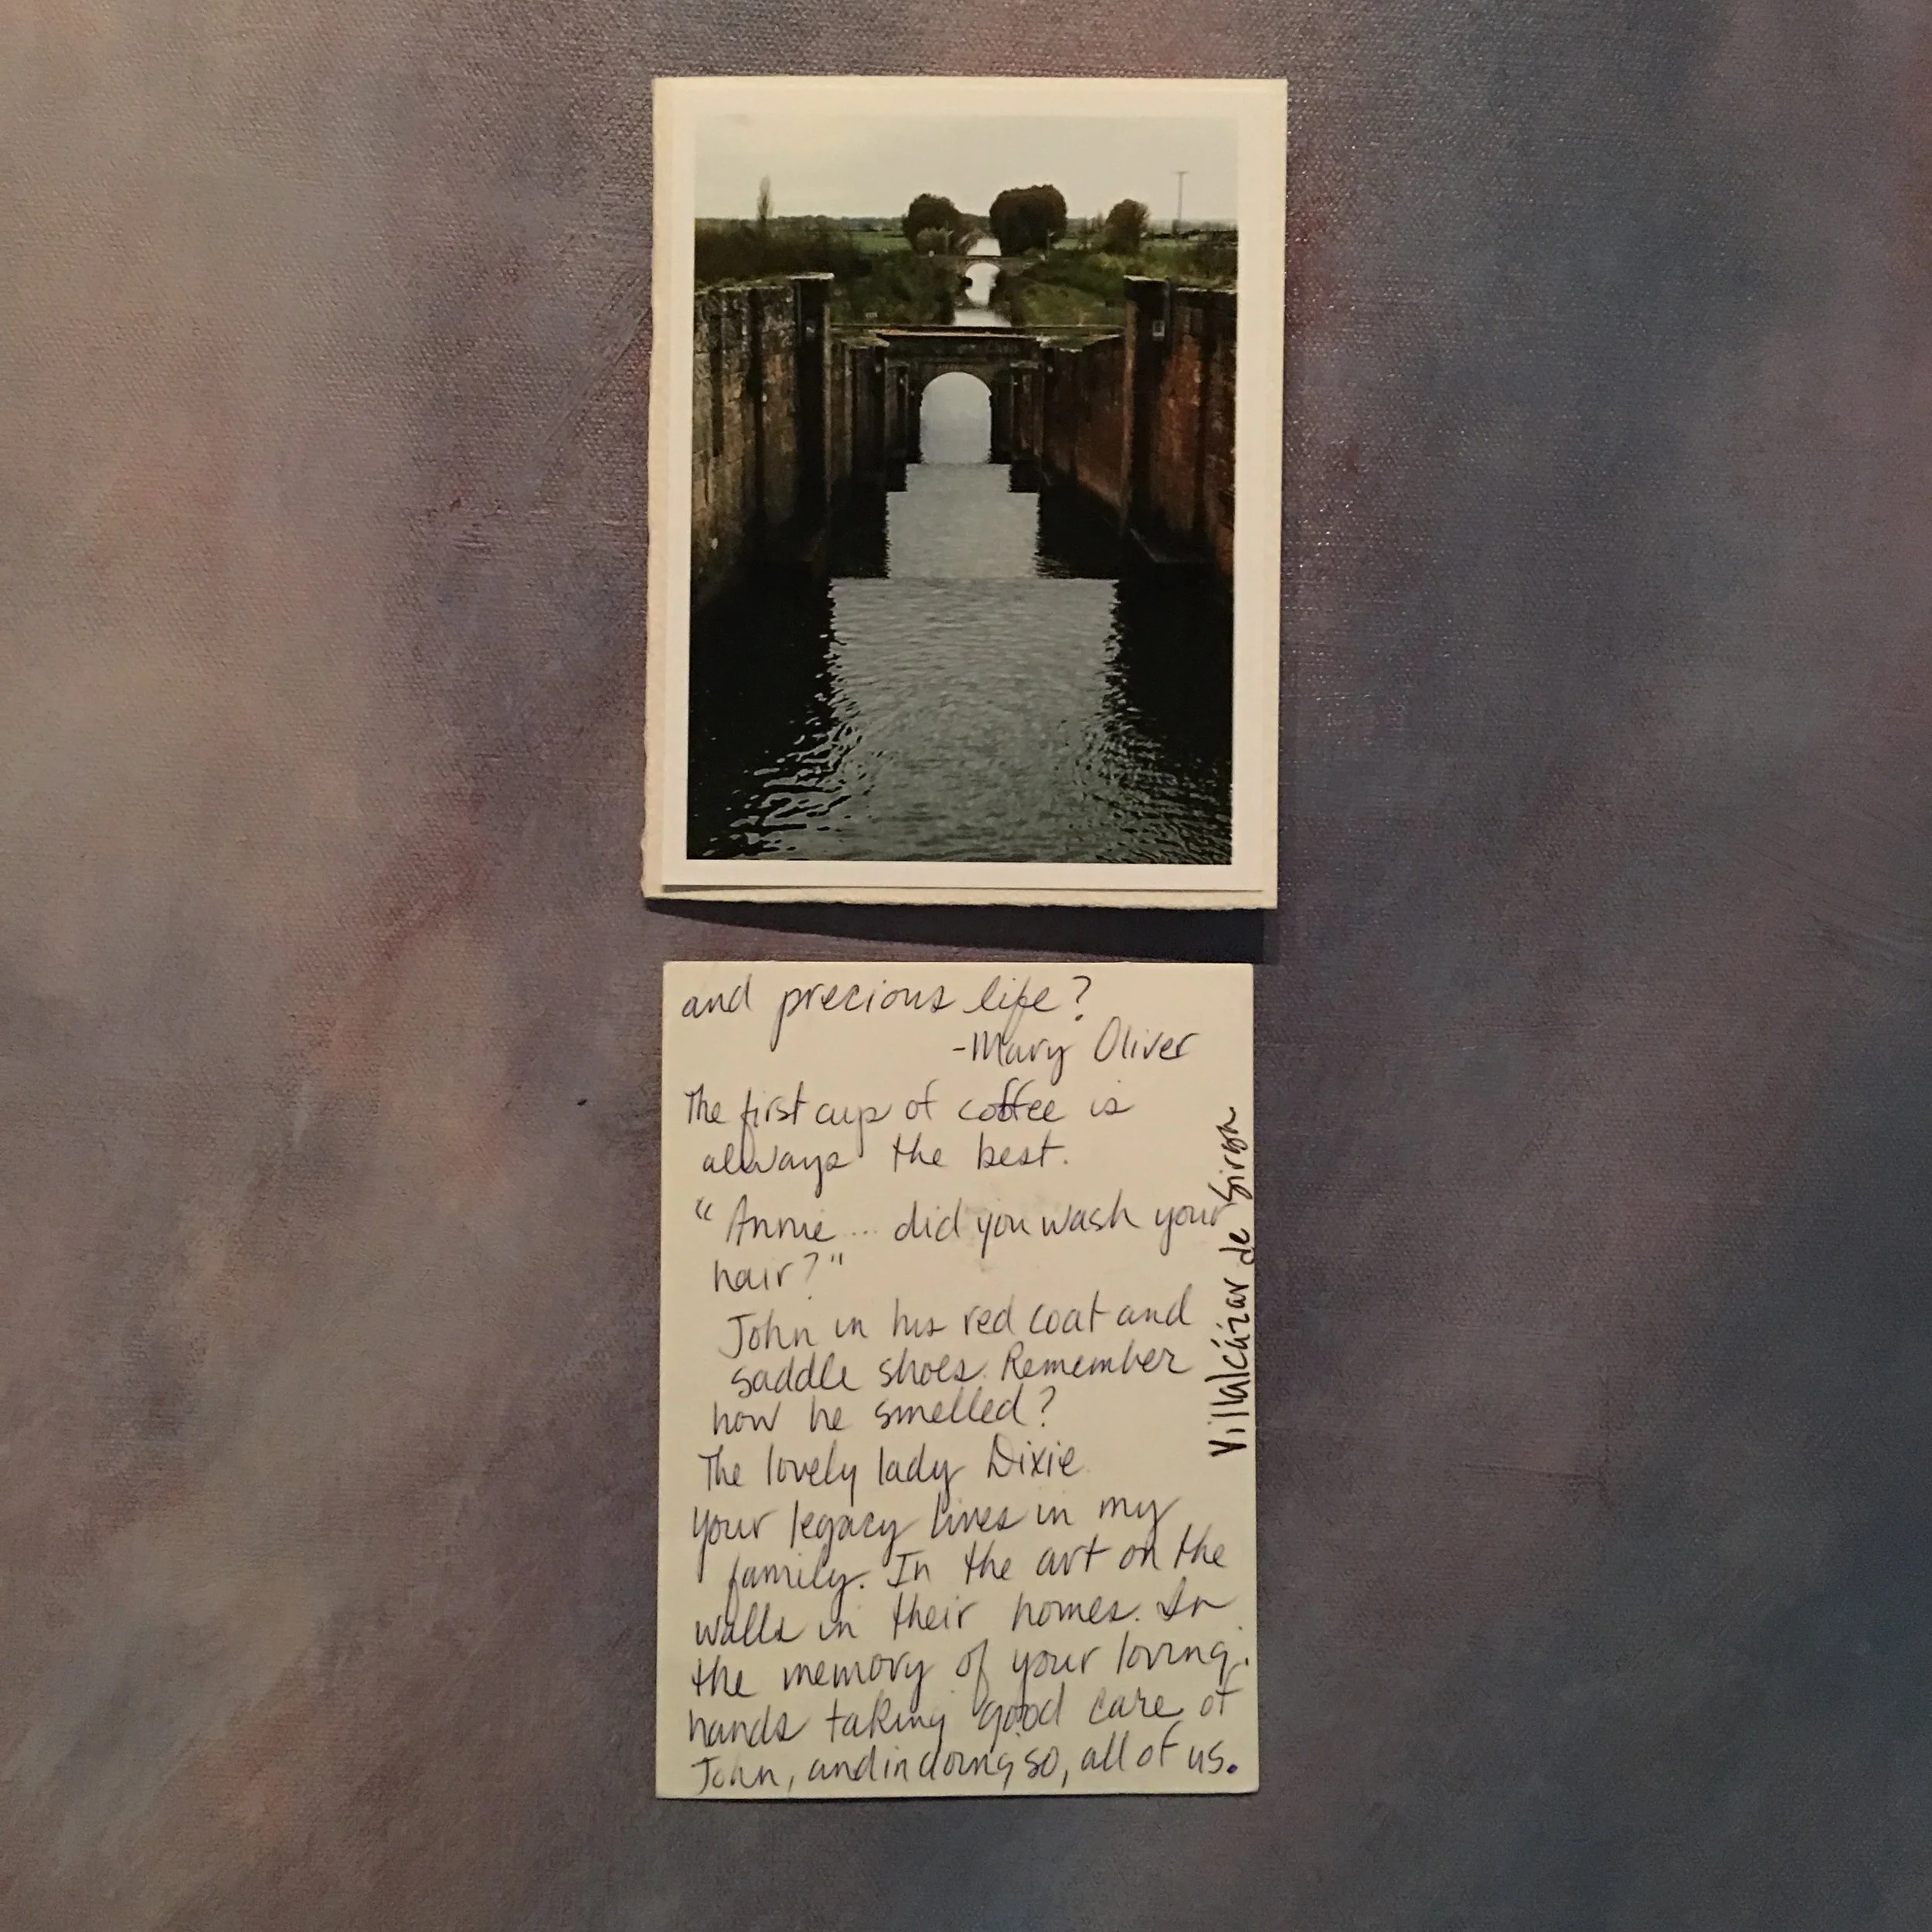 and precious life?
-Mary Oliver
The first cup of coffee is
always the best.
"Annie... did you wash your
hair?"
John in his red coat and
saddle shoes. Remember
how he smelled?
The lovely lady Dixie
Your legacy lives in my
family. In the art on the
walls in their homes. In
the memory of your loving
hands taking good care of
John, and in doing so, all of us.
Villalcázar de Sirga